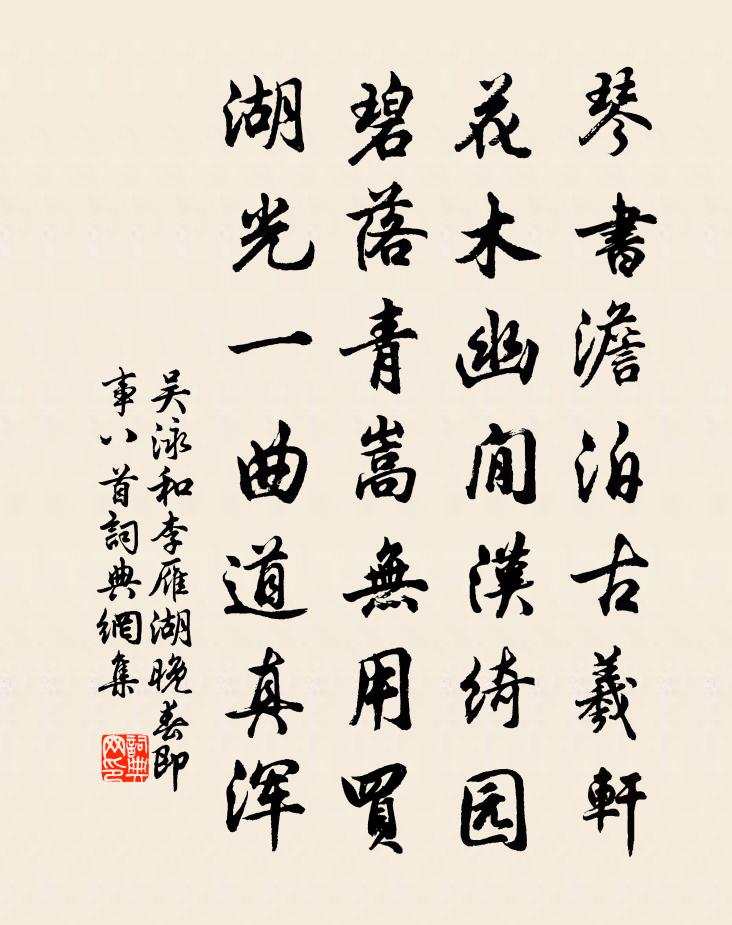 琴書澹泊古羲軒
花木幽閒漢綺园
碧落青嵩無用買
湖光一曲道真浑
吴泳和李雁湖晚春即
事八首詞典網集
詞典
网印